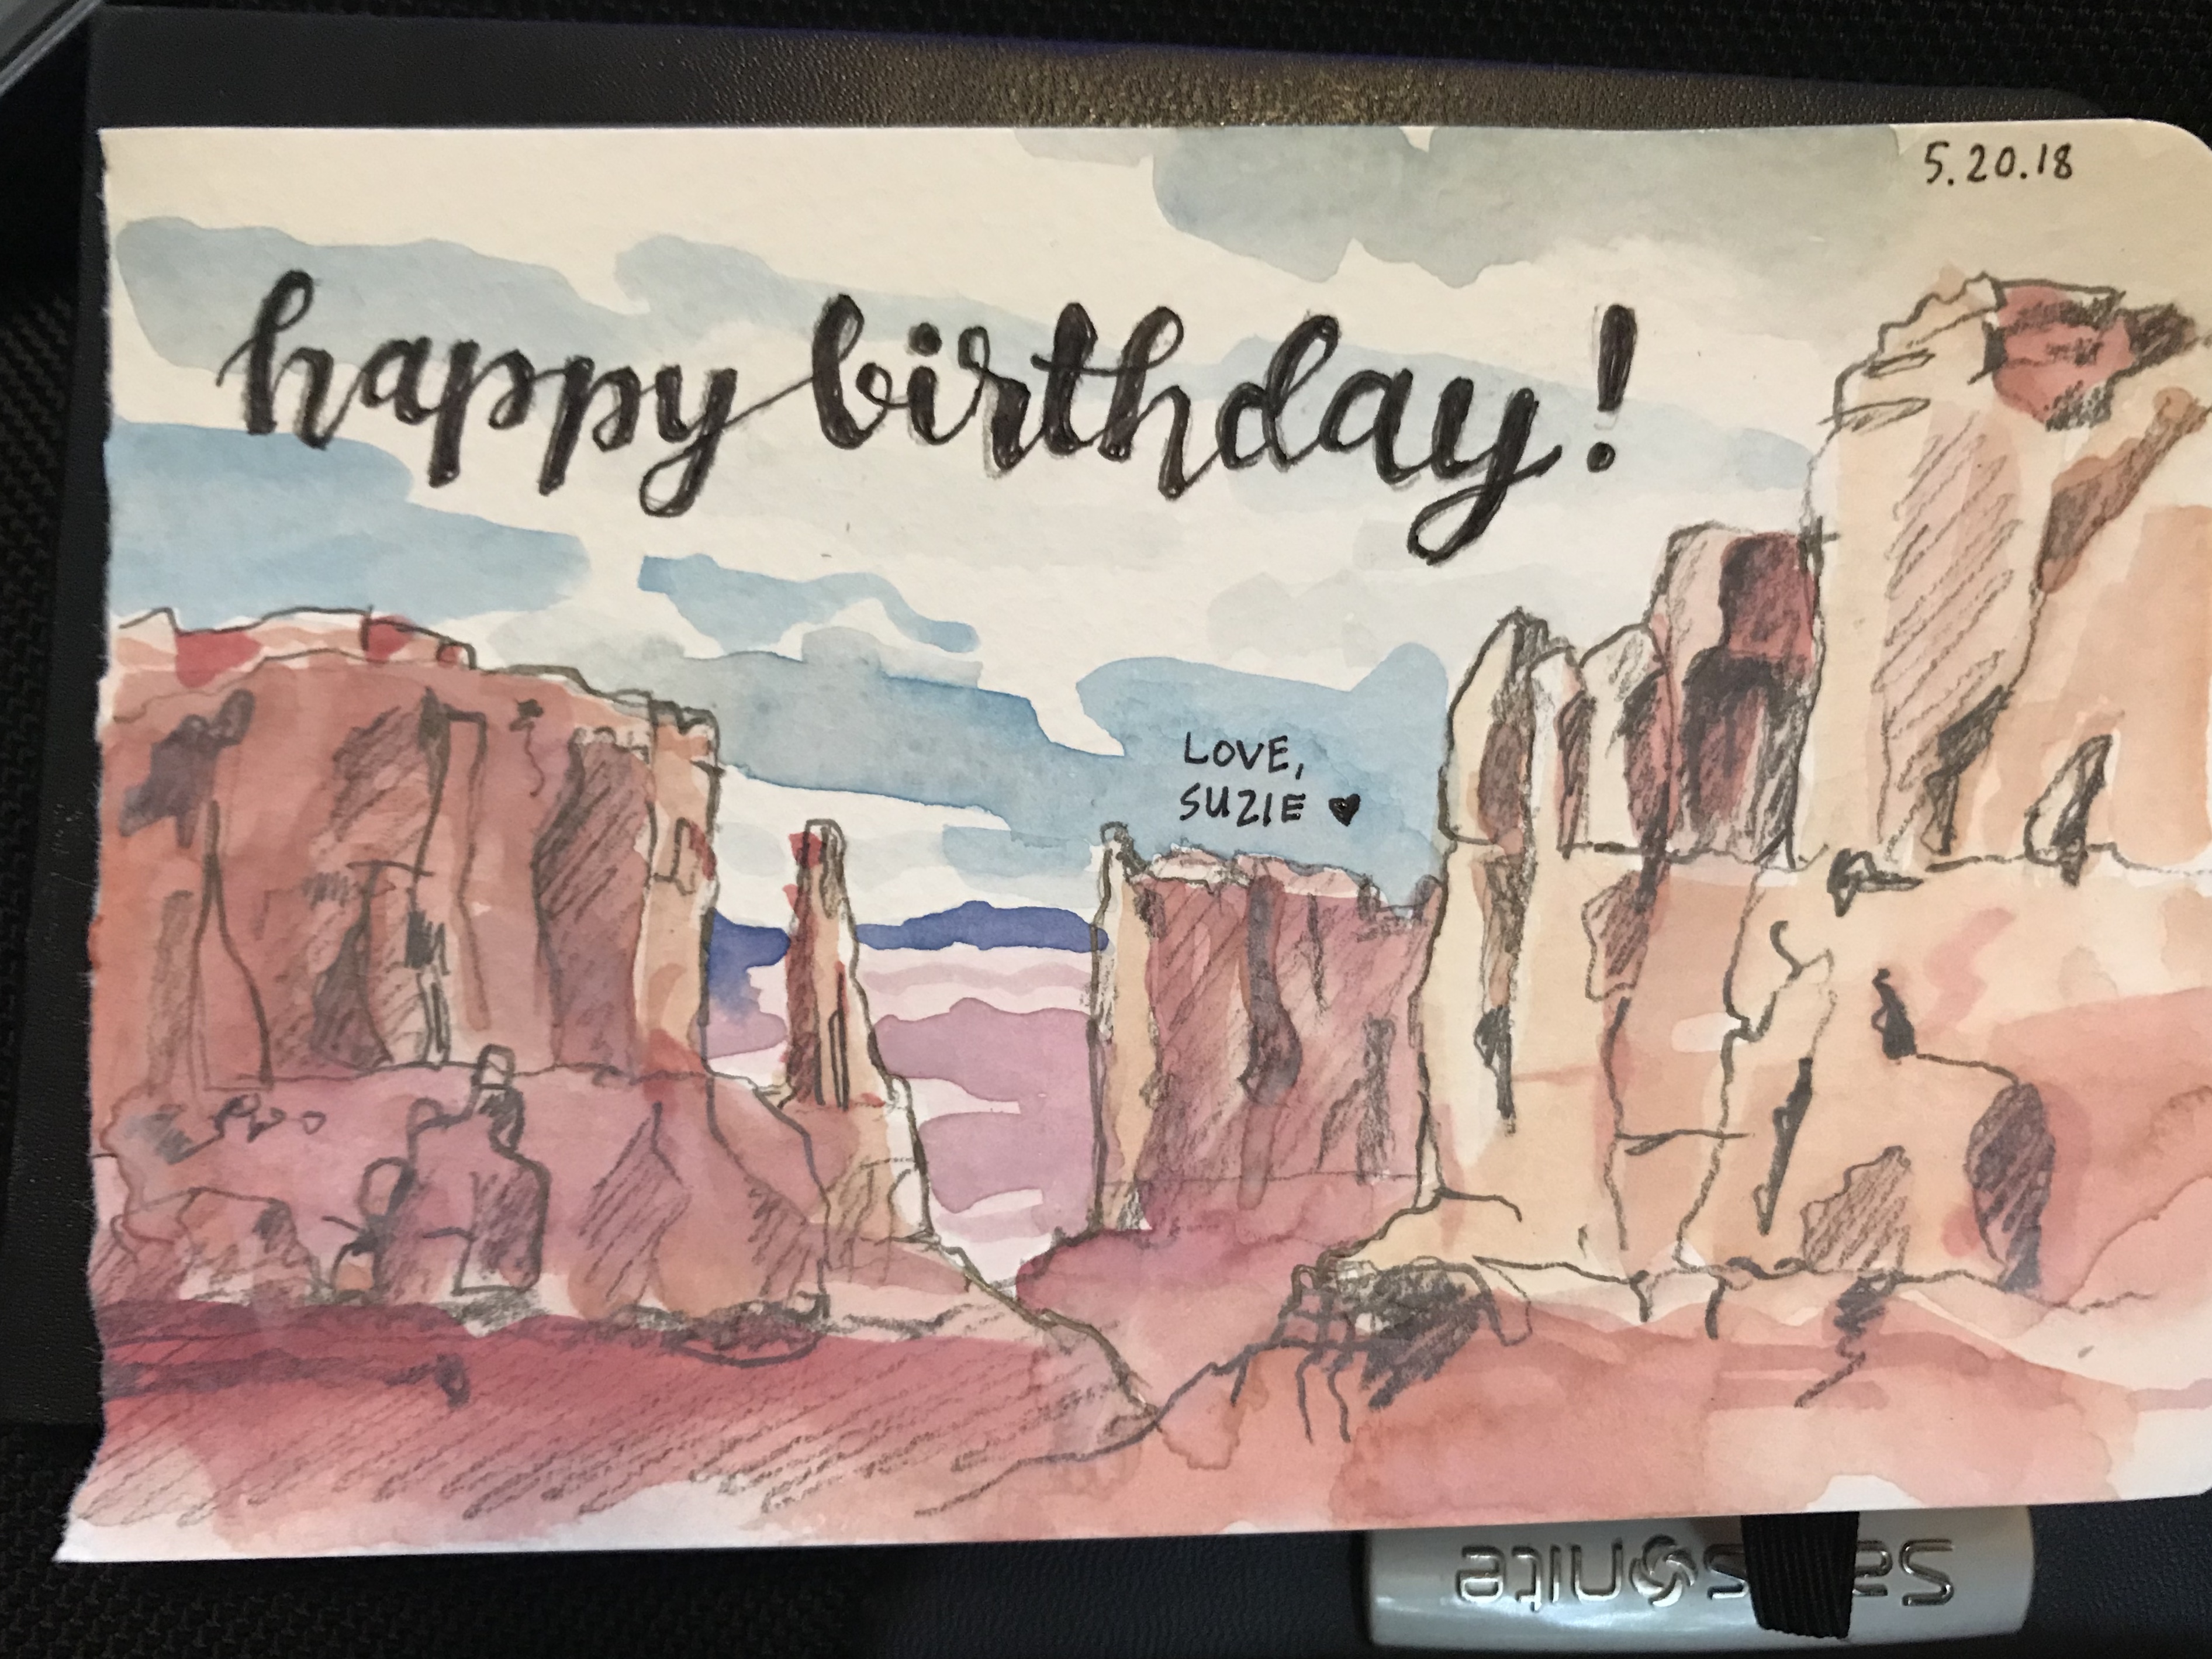 5.20.18
happy birthday!
LOVE,
SUZIE ♥
Samsonite